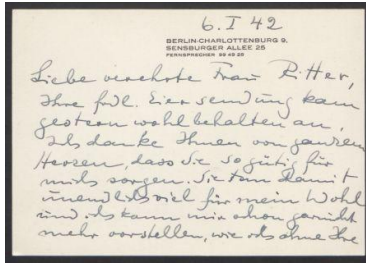 6. I 42
BERLIN-CHARLOTTENBURG 9,
SENSBURGER ALLEE 25
FERNSPRECHER 99 45 25
Liebe verehrte Frau Ritter,
Ihre frdl. Eiersendung kam
gestern wohlbehalten an,
ich danke Ihnen von ganzem
Herzen, dass Sie so gütig für
mich sorgen. Sie tun damit
unendlich viel für mein Wohl
und ich kann mir schon garnicht
mehr vorstellen, wie ich ohne Ihre